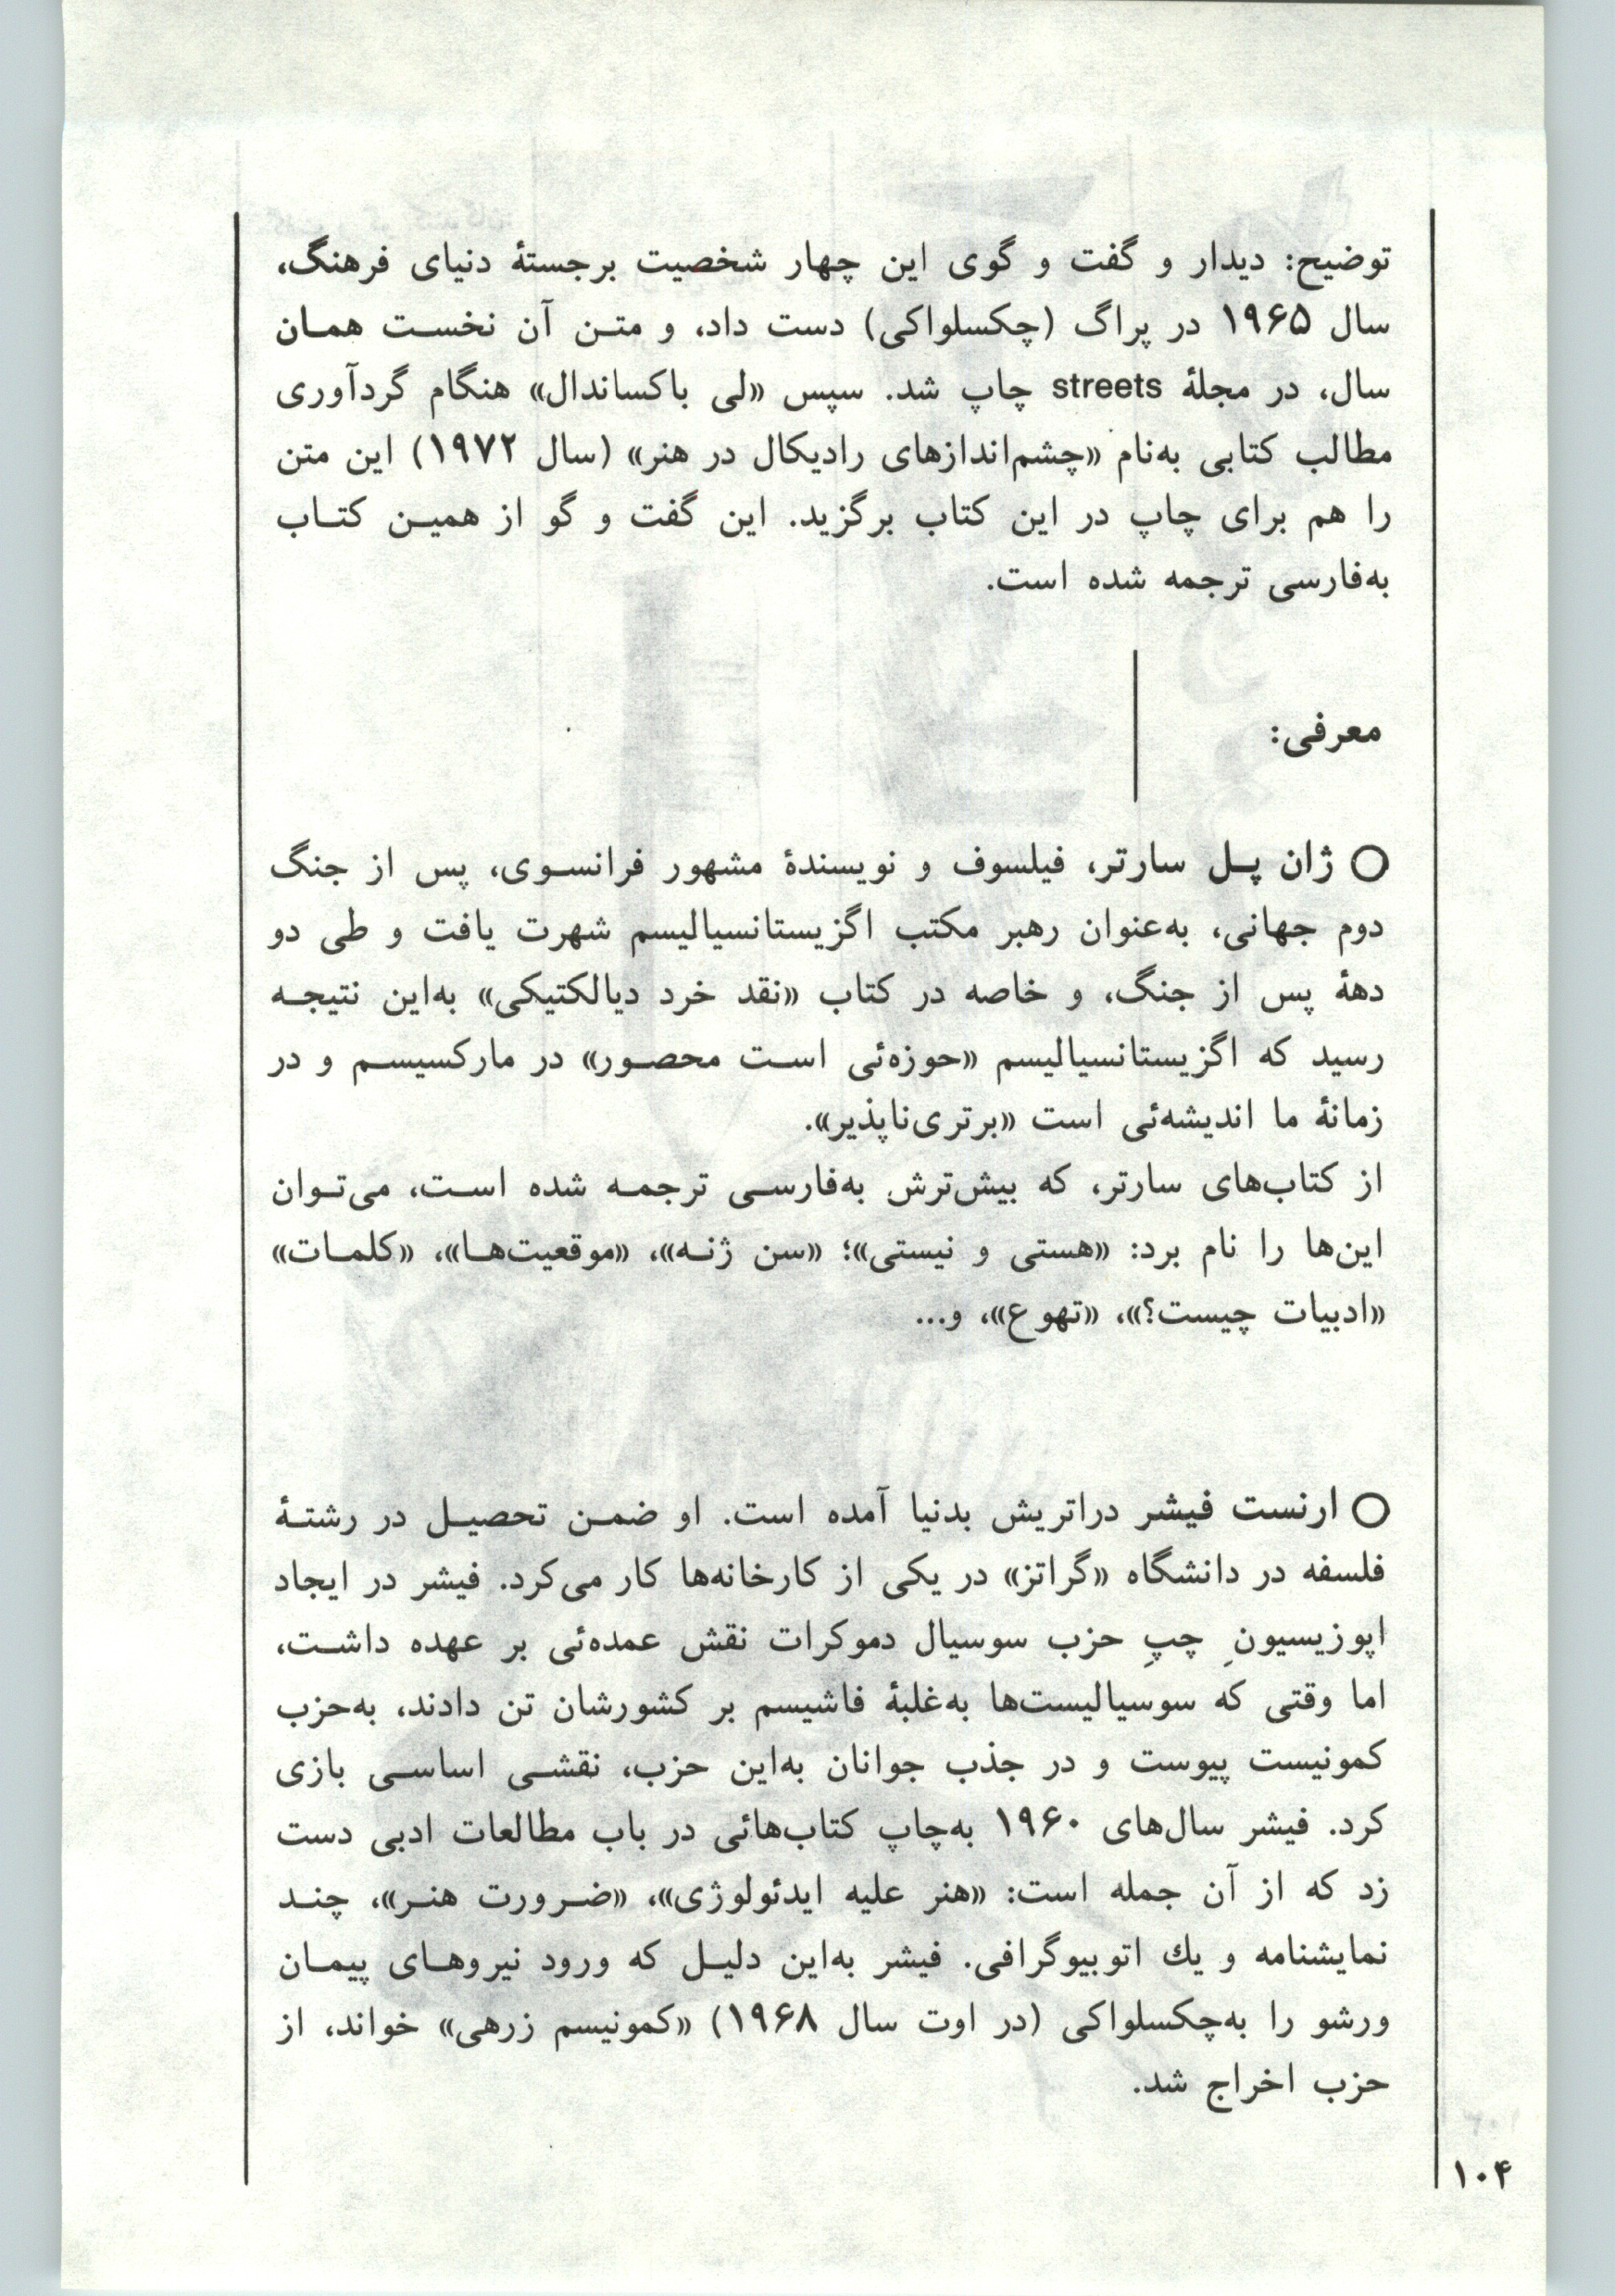 توضیح: دیدار و گفت و گوی این چهار شخصیت برجستهٔ دنیای فرهنگ،
سال ۱۹۶۵ در پراگ (چکسلواکی) دست داد، و متن آن نخست همان
سال، در مجلهٔ streets چاپ شد. سپس «لی باکساندال» هنگام گردآوری
مطالب کتابی به‌نام «چشم‌اندازهای رادیکال در هنر» (سال ۱۹۷۲) این متن
را هم برای چاپ در این کتاب برگزید. این گفت و گو از همین کتاب
به‌فارسی ترجمه شده است.
معرفی:
○ ژان پل سارتر، فیلسوف و نویسندهٔ مشهور فرانسوی، پس از جنگ
دوم جهانی، به‌عنوان رهبر مکتب اگزیستانسیالیسم شهرت یافت و طی دو
دههٔ پس از جنگ، و خاصه در کتاب «نقد خرد دیالکتیکی» به‌این نتیجه
رسید که اگزیستانسیالیسم «حوزه‌ئی است محصور» در مارکسیسم و در
زمانهٔ ما اندیشه‌ئی است «برتری‌ناپذیر».
از کتاب‌های سارتر، که بیش‌ترش به‌فارسی ترجمه شده است، می‌توان
این‌ها را نام برد: «هستی و نیستی»؛ «سن ژنه»، «موقعیت‌ها»، «کلمات»
«ادبیات چیست؟»، «تهوع»، و...
○ ارنست فیشر دراتریش بدنیا آمده است. او ضمن تحصیل در رشتهٔ
فلسفه در دانشگاه «گراتز» در یکی از کارخانه‌ها کار می‌کرد. فیشر در ایجاد
اپوزیسیونِ چپِ حزب سوسیال دموکرات نقش عمده‌ئی بر عهده داشت،
اما وقتی که سوسیالیست‌ها به‌غلبهٔ فاشیسم بر کشورشان تن دادند، به‌حزب
کمونیست پیوست و در جذب جوانان به‌این حزب، نقشی اساسی بازی
کرد. فیشر سال‌های ۱۹۶۰ به‌چاپ کتاب‌هائی در باب مطالعات ادبی دست
زد که از آن جمله است: «هنر علیه ایدئولوژی»، «ضرورت هنر»، چند
نمایشنامه و یك اتوبیوگرافی. فیشر به‌این دلیل که ورود نیروهای پیمان
ورشو را به‌چکسلواکی (در اوت سال ۱۹۶۸) «کمونیسم زرهی» خواند، از
حزب اخراج شد.
۱۰۴